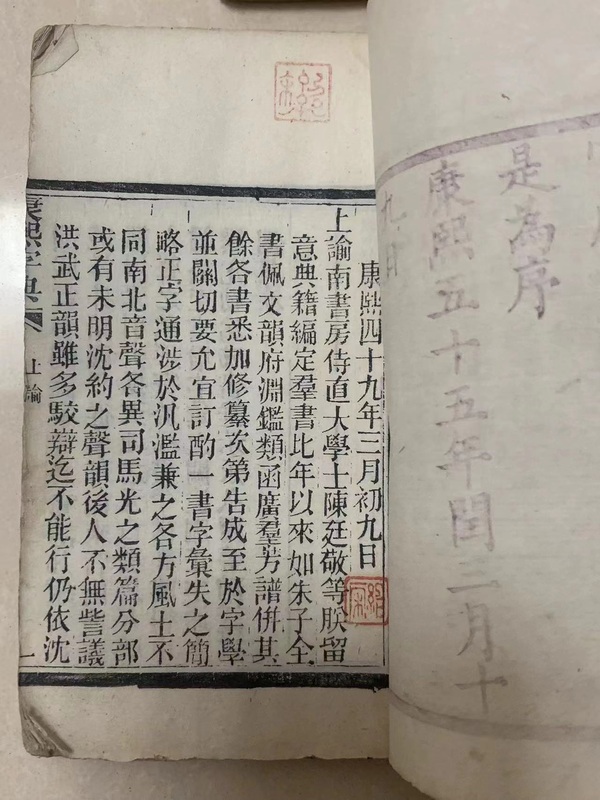 是為序
康熙五十五年閏三月十
九日
康熙四十九年三月初九日
上諭南書房侍直大學士陳廷敬等朕留
意典籍編定羣書比年以來如朱子全
書佩文韻府淵鑑類函廣羣芳譜併其
餘各書悉加修纂次第告成至於字學
並關切要允宜訂酌一書字彙失之簡
略正字通涉於汎濫兼之各方風土不
同南北音聲各異司馬光之類篇分部
或有未明沈約之聲韻後人不無訾議
洪武正韻雖多駁辯迄不能行仍依沈
康熙字典 上諭 一